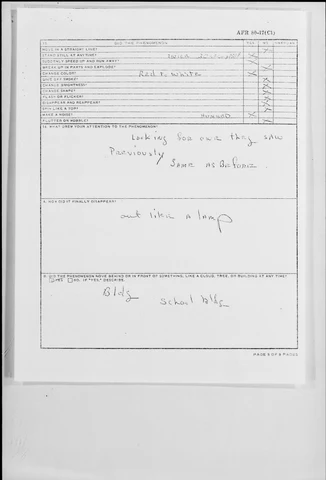 AFR 80-17(C1)
DID THE PHENOMENON
MOVE IN A STRAIGHT LINE?
STAND STILL AT ANY TIME?
SUDDENLY SPEED UP AND RUN AWAY?
BREAK UP IN PARTS AND EXPLODE?
CHANGE COLOR? Red & White
GIVE OFF SMOKE?
CHANGE BRIGHTNESS?
CHANGE SHAPE?
FLASH OR FLICKER?
DISAPPEAR AND REAPPEAR?
SPIN LIKE A TOP?
MAKE A NOISE?
FLUTTER OR WOBBLE?
WHAT DREW YOUR ATTENTION TO THE PHENOMENON?
Looking for one they saw
Previously
Same as Before.
HOW DID IT FINALLY DISAPPEAR?
out like a lamp
DID THE PHENOMENON MOVE BEHIND OR IN FRONT OF SOMETHING, LIKE A CLOUD, TREE, OR BUILDING AT ANY TIME?
YES NO. IF "YES" DESCRIBE.
Bldg
School bldg